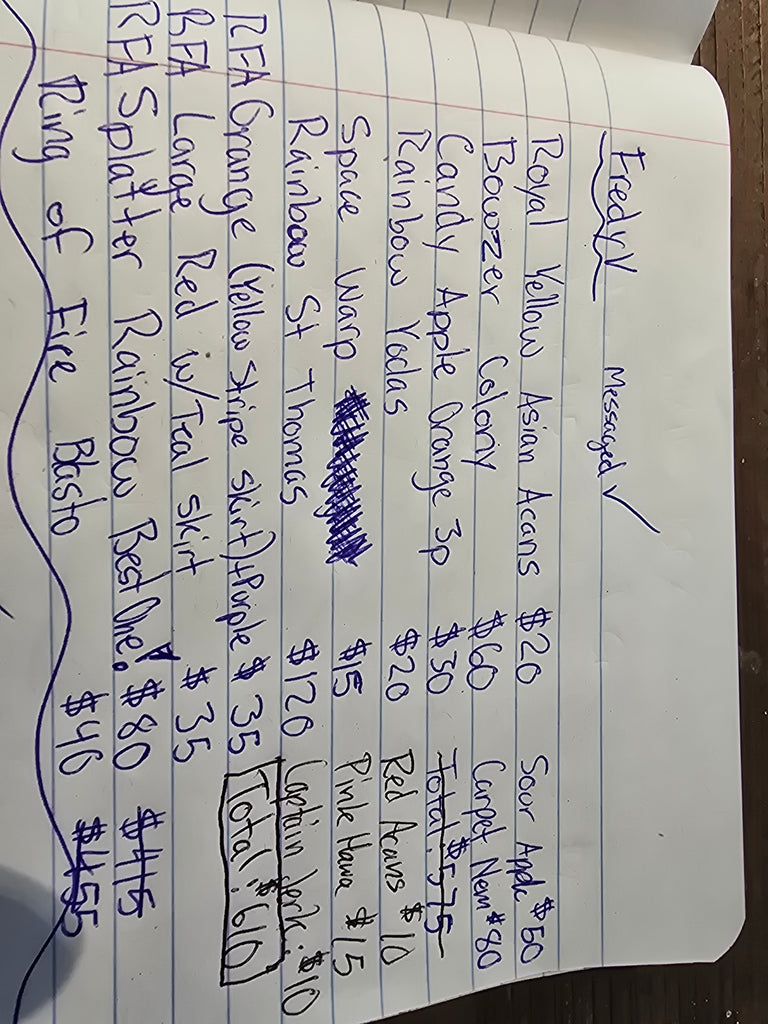 Fredy V Messaged ✓
Royal Yellow Asian Acans $20 Sour Apple $50
Bowzer Colony $60 Carpet Nem $80
Candy Apple Orange 3p $30 Total: $575
Rainbow Yodas $20 Red Acans $10
Space Warp $15 Pink Hawa $15
Rainbow St Thomas $120 Captain Jerk: $10
RFA Orange (Yellow stripe skirt)+Purple $35 Total: $610
RFA Large Red w/Teal skirt $35
RFA Splatter Rainbow Best One! $80 $415
Ring of Fire Blasto $40 $455